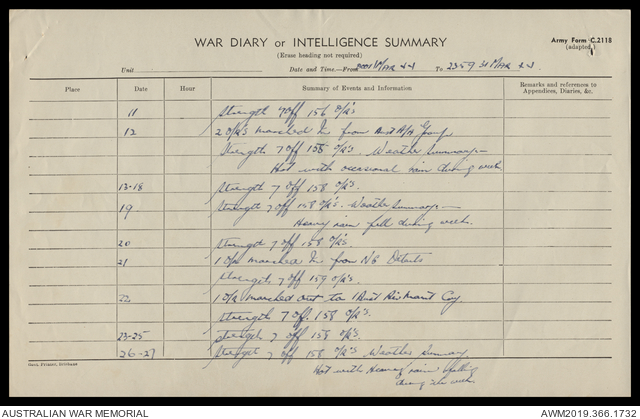 WAR DIARY OR INTELLIGENCE SUMMARY
(Erase heading not required)
Army Form C.2118
(adapted)
Unit
Date and Time.—From 0001 1/MAR 44 To 2359 31 MAR 44
Place Date Hour Summary of Events and Information Remarks and references to Appendices, Diaries, &c.
11 Strength 7 Off 156 O/R's
12 2 O/R's marched In from
Strength 7 Off 158 O/R's. Weather Summary:-
Hot with occasional rain during week
13-18 Strength 7 Off 158 O/R's
19 Strength 7 Off 158 O/R's. Weather Summary:-
Heavy rain fell during week.
20 Strength 7 Off 158 O/R's.
21 1 O/R marched In from NG Details
Strength 7 Off 159 O/R's.
22 1 O/R marched out to 1 Aust Coy.
Strength 7 Off. 158 O/R's.
23-25 Strength 7 Off 158 O/R's.
26-27 Strength 7 Off 158 O/R's Weather Summary
Hot with Heavy rain falling
during the week.
Govt. Printer, Brisbane
AUSTRALIAN WAR MEMORIAL
AWM2019.366.1732